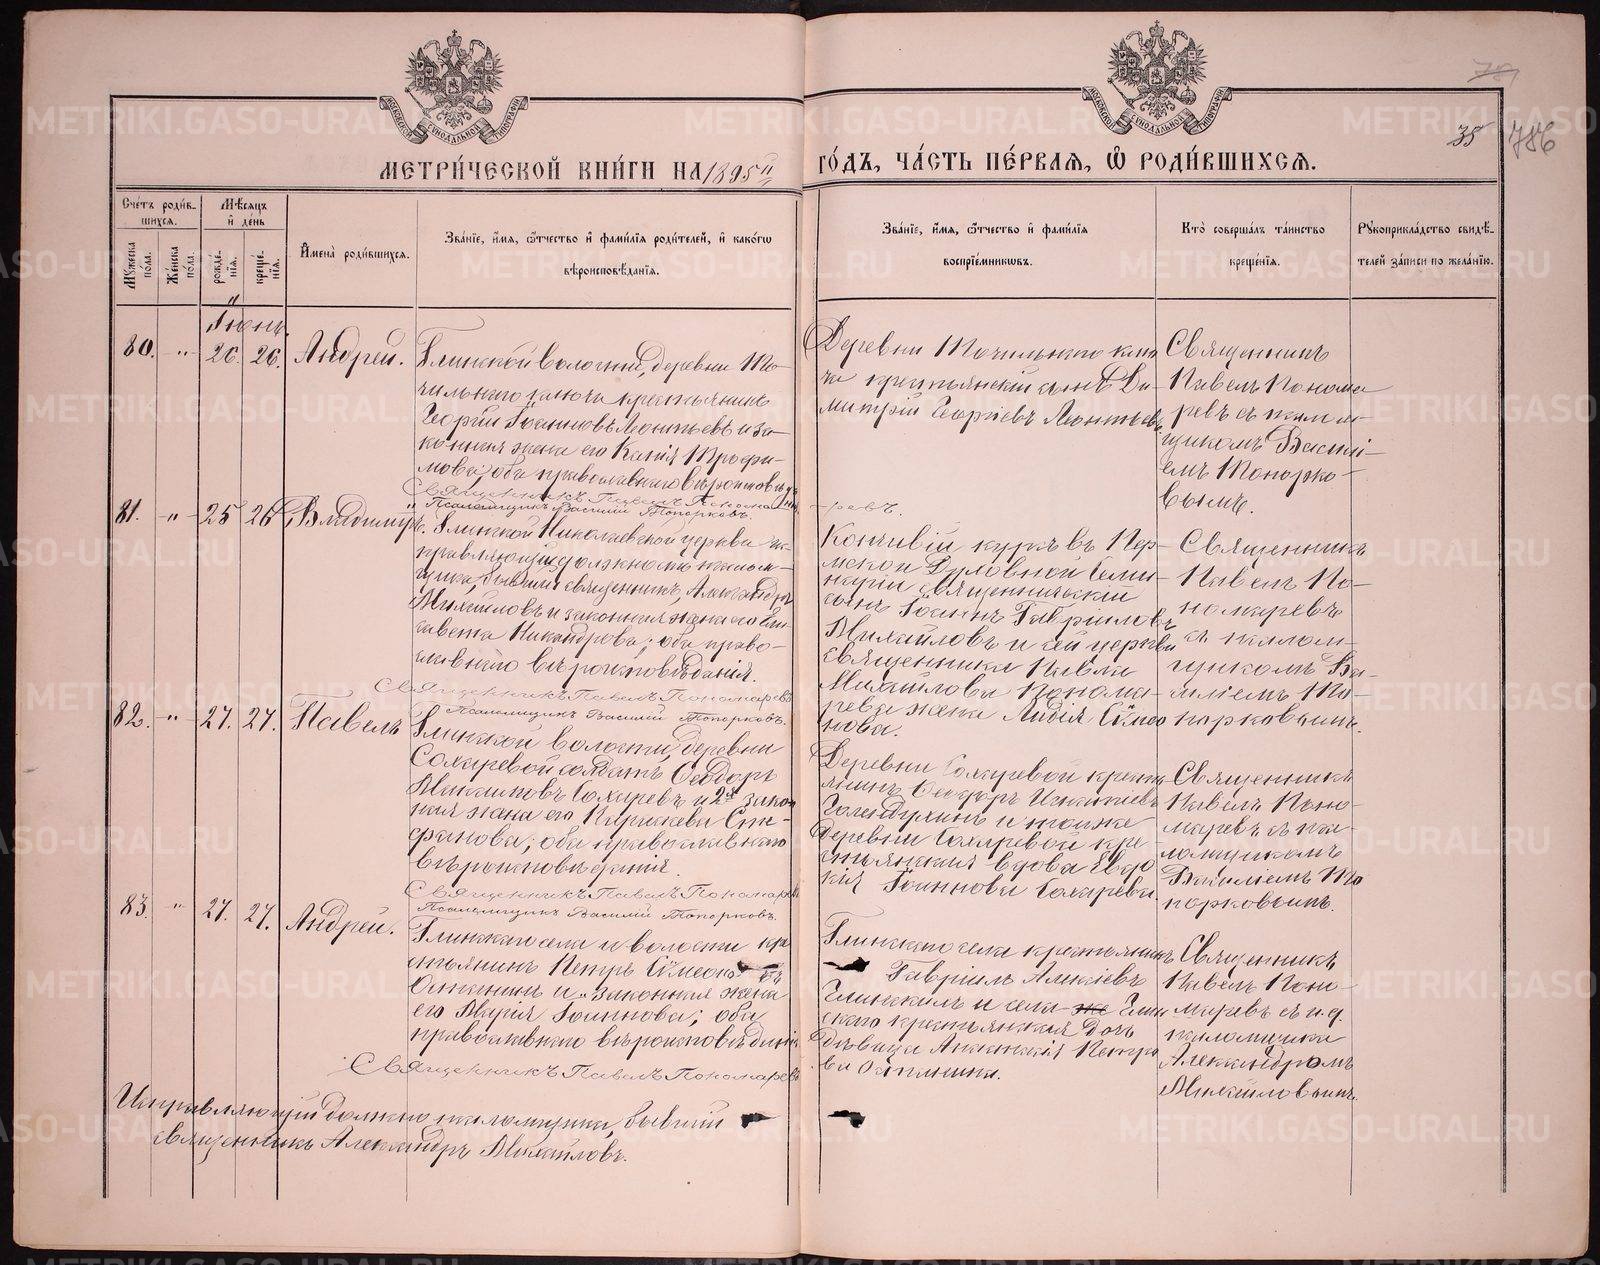 МЕТРИ́ЧЕСКОЙ КНИ́ГИ НА 1895й ГО́ДЪ, ЧА́СТЬ ПЕ́РВАЯ, Ѡ РОДИ́ВШИХСЯ.
35 786
Сче́тъ роди́вшихся.
Му́жеска по́ла.
Же́нска по́ла.
Мѣ́сяцъ и де́нь
рожде́нія.
креще́нія.
И҆мена̀ роди́вшихся.
Зва́ніе, и҆́мя, ѻ҆́тчество и҆ фами́лія роди́телей, и҆ како́гѡ
вѣроисповѣ́данія.
Зва́ніе, и҆́мя, ѻ҆́тчество и҆ фами́лія
воспріе́мниковъ.
Кто̀ соверша́лъ та́инство
креще́нія.
Рукоприкла́дство свидѣ́-
телей за́писи по жела́нію.
Іюнь.
80. " 26. 26. Андрей.
Глинской волости, деревни То-
чильнаго ключа крестьянинъ
Георгій Іоанновъ Леонтьевъ и за-
конная жена его Ксенія Трофи-
мова; оба православнаго вѣроисповѣд.
Священникъ Павелъ Понома-
Псаломщикъ Василій Топорковъ.
ревъ.
Деревни Точильнаго клю-
ча крестьянскій сынъ Ди-
митрій Георгіевъ Леонтьевъ
Священникъ
Павелъ Понома
ревъ съ псалом-
щикомъ Васили-
емъ Топорко-
вымъ.
81. " 25 26 Владиміръ.
Глинской Николаевской церкви ис-
правляющій должность псалом-
щика, бывшій священникъ, Александръ
Михайловъ и законная жена его Ели-
савета Никандрова; оба право-
славнаго вѣроисповѣданія.
Священникъ Павелъ Пономаревъ
Псаломщикъ Василій Топорковъ.
Кончившій курсъ въ Пер-
мской Духовной Семи-
наріи священническій
сынъ Іоаннъ Гавріиловъ
Михайловъ и сей церкви
священника Павла
Михайлова Понома-
рева жена Лидія Сімео
нова.
Священникъ
Павелъ По-
номаревъ
съ псалом-
щикомъ Ва-
силіемъ То-
порковымъ.
82. " 27. 27. Павелъ
Глинской волости, деревни
Сохаревой солдатъ Ѳеодоръ
Никитовъ Сохаревъ и 2я закон
ная жена его Параскева Сте-
фанова; оба православнаго
вѣроисповѣданія.
Священникъ Павелъ Пономаревъ
Псаломщикъ Василій Топорковъ.
Деревни Сохаревой кресть
янинъ Ѳеодоръ
и тоя же
деревни Сохаревой кре-
стьянская вдова Евдо
кія Іоаннова Сохарева.
Священникъ
Павелъ Поно-
маревъ съ пса-
ломщикомъ
Василіемъ То
порковымъ.
83. " 27. 27. Андрей.
Глинскаго села и волости кре
стьянинъ Петръ Сімеоновъ
и законная жена
его Марія Іоаннова; оба
православнаго вѣроисповѣданія
Священникъ Павелъ Пономаревъ
Глинскаго села крестьянинъ
Гавріилъ Алексіевъ
и села же Глин
скаго крестьянская дочь
дѣвица Петро
ва
Священникъ
Павелъ Поно-
маревъ съ и.д.
псаломщика
Александромъ
Михайловымъ.
Исправляющій должн. псаломщика, бывшій
священникъ Александръ Михайловъ.